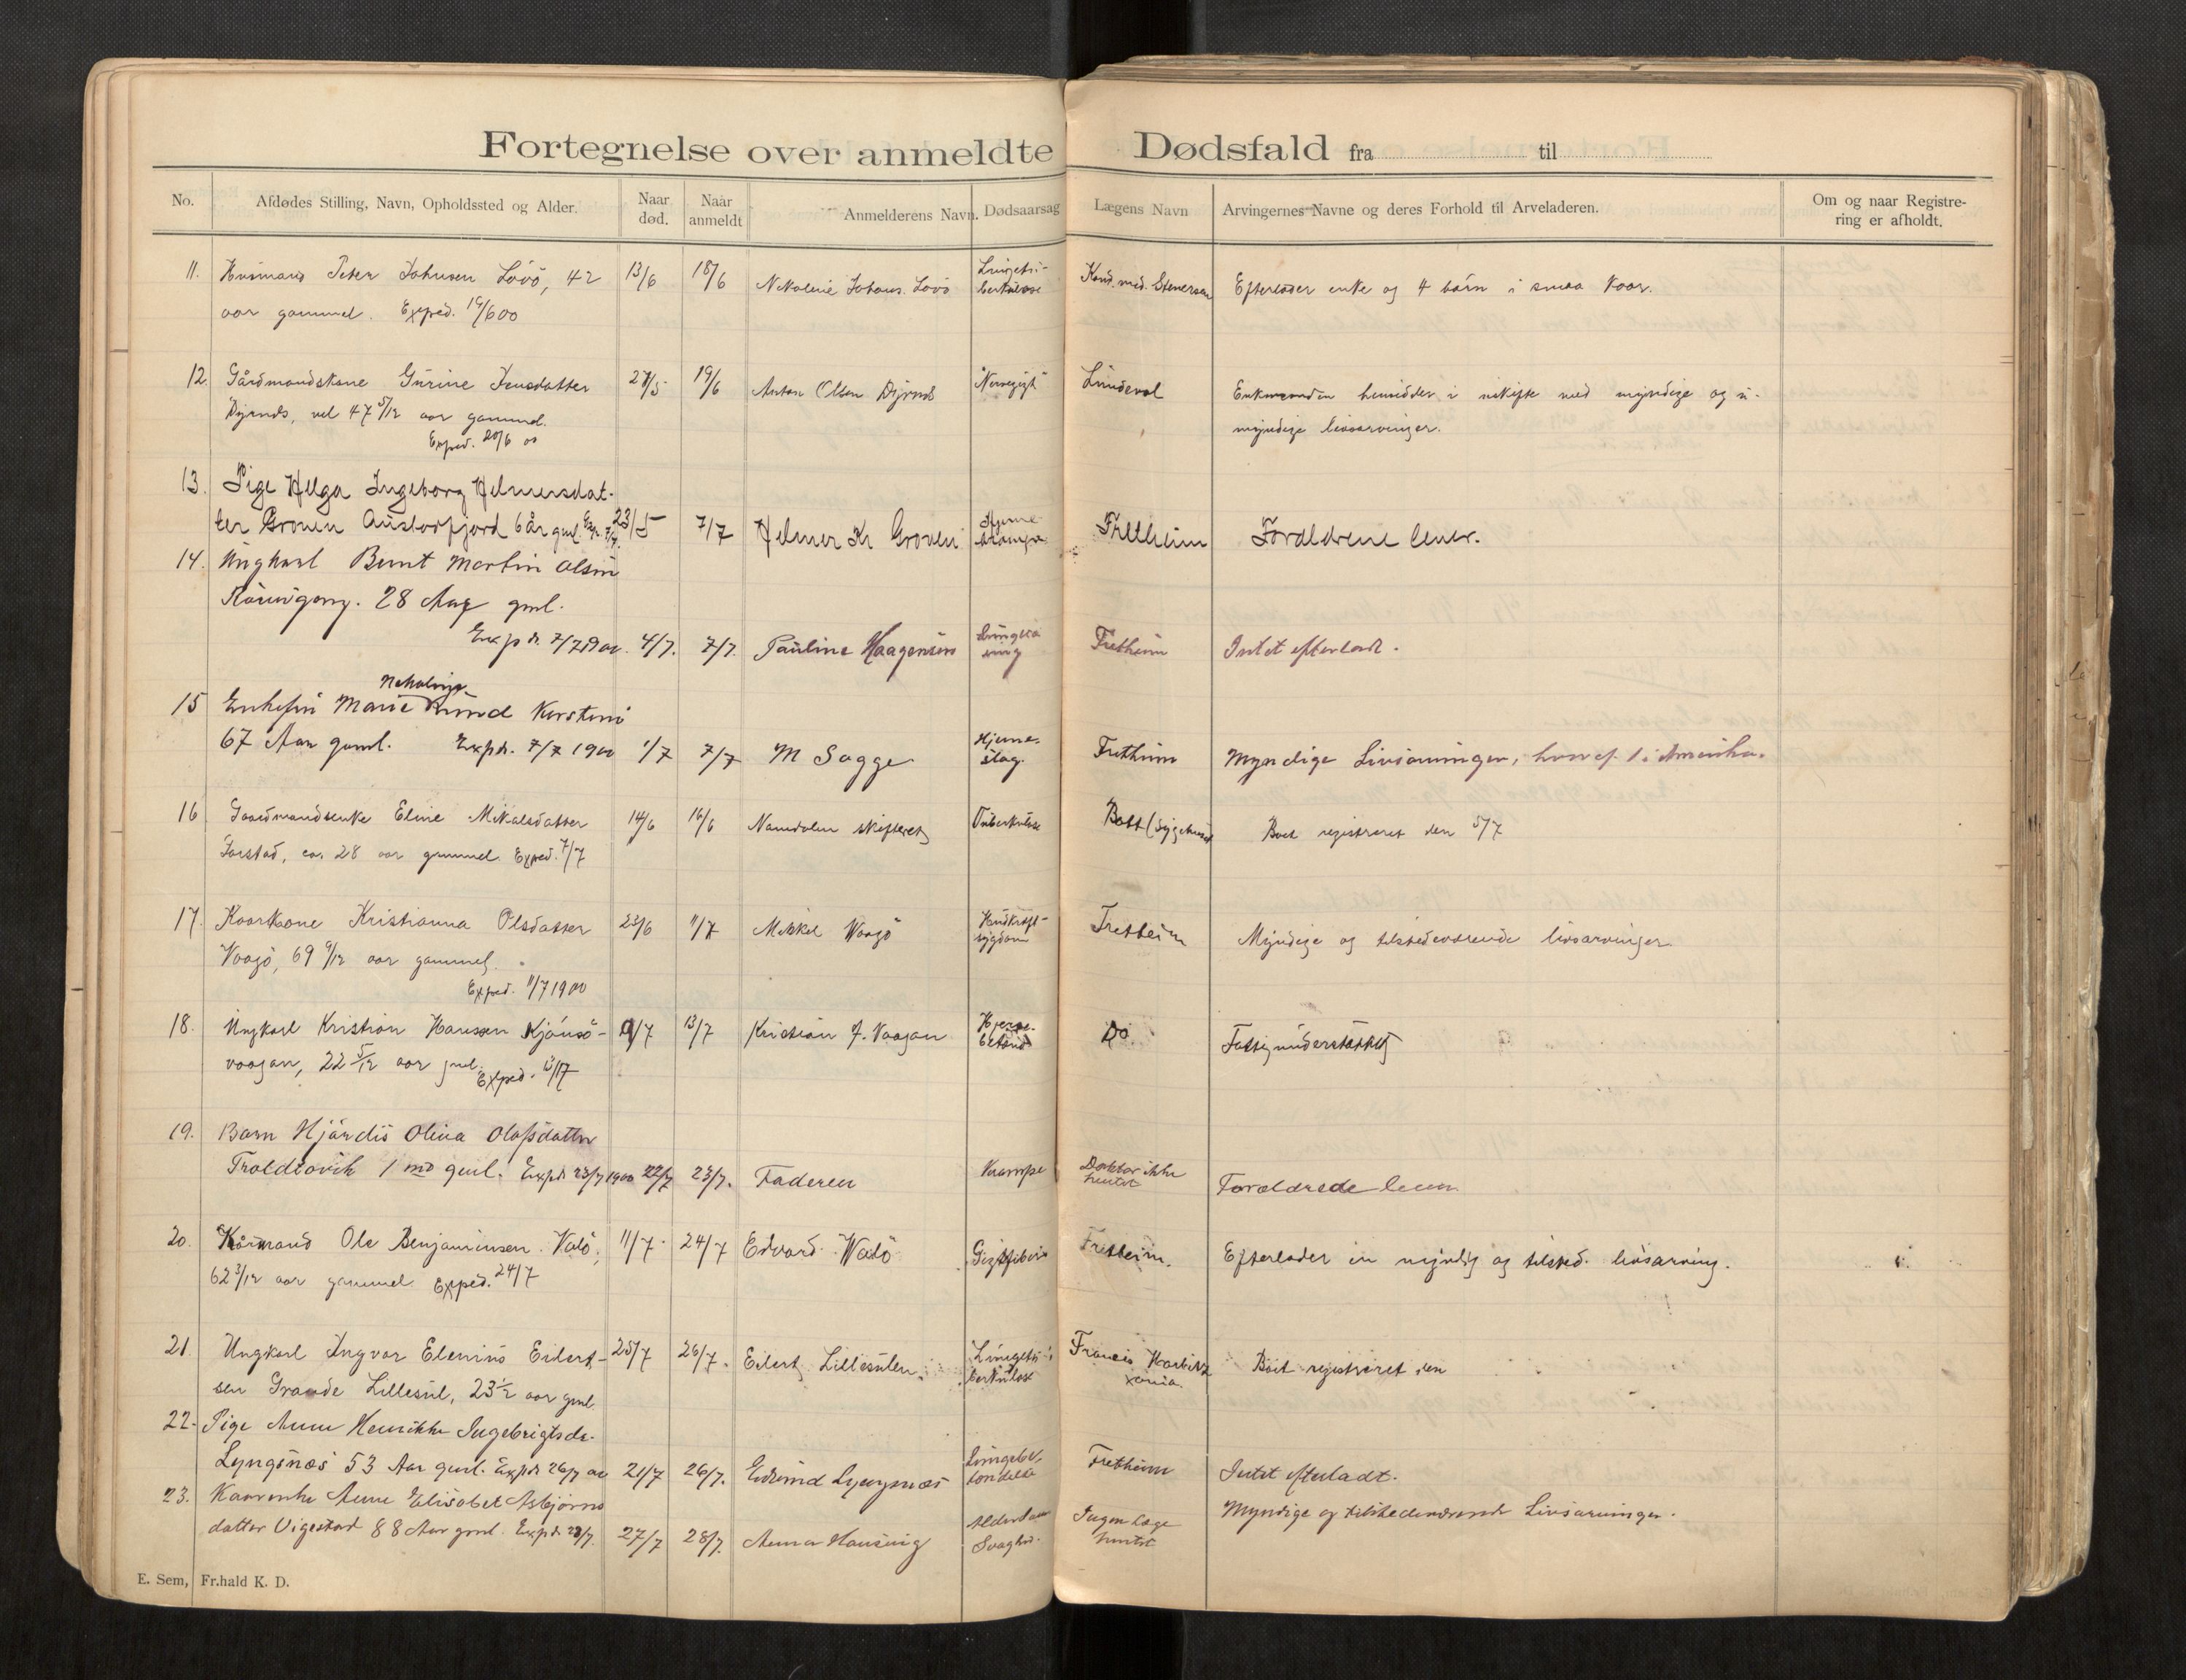 Fortegnelse over anmeldte Dødsfald fra til
No. Afdødes Stilling, Navn, Opholdssted og Alder. Naar død. Naar anmeldt Anmelderens Navn. Dødsaarsag Lægens Navn Arvingernes Navne og deres Forhold til Arveladeren. Om og naar Registrering er afholdt.
11. Husmand Peter Johnsen Lövö, 42 13/6 18/6 Nikoline Johans. Lövö Lungetu-
aar gammel. Exped. 19/6 00 berkulose Kand. med. Stenersen Efterlader enke og 4 börn i smaa kaar.
12. Gårdmandskone Gurine Jensdatter 27/5 19/6 Anton Olsen Dyrnes "Nervegigt" Lindevol Enkemanden hensidder i uskifte med myndige og u-
Dyrnes, vel 47 5/12 aar gammel. myndige livsarvinger.
Exped. 20/6 00
13. Pige Helga Ingeborg Helmersdat-
ter Groven Austorfjord 6 år gml. Exp. 7/7. 23/5 7/7 Helmer Kr Groven Hjerne krampe Fretheim Foraldrene lever.
14. Ungkarl Bernt Martin Olsen
28 Aar gml.
Expd. 7/7 1900. 4/7. 7/7. Pauline Haagensen Fretheim Intet efterladt.
Nikoline
15 Enkefru Marie Lund
67 Aar gaml. Expd. 7/7 1900 1/7 7/7 M Sagge Hjerne- slag. Fretheim Myndige Livsarvinger, hvoraf 1 i Amerika.
16 Gaardmandsenke Eline Mikalsdatter 14/6 16/6 Namdalen skifteret Tuberkulose Bott (Sygehuset Boet registreret den 5/7
Farstad, ca. 28 aar gammel Exped. 7/7
17. Kaarkone Kristianna Olsdatter 23/6 11/7 Mikkel Vaagö sygdom Fretheim Myndige og tilstedeværende livsarvinger
Vaagö, 69 9/12 aar gammel.
Exped. 11/7 1900
18. Ungkarl Kristian Hanssen Kjönsö- 9/7 13/7 Kristian J. Vaagan Do Fattigunderstöttet
vaagan, 22 5/12 aar gml. Exped. 13/7
19. Barn Hjördis Olina Olafsdatter
Troldtovik 1 md gml. Expd. 23/7 1900 22/7 23/7. Faderen Krampe Doktor ikke hentet Foraldrede lever
20. Kårmand Ole Benjaminsen Valö, 11/7. 24/7 Edvard Walö Gigtfeber Fretheim. Efterlader en myndig og tilsted. livsarving.
62 3/12 aar gammel Exped. 24/7
21 Ungkarl Ingvar Elenius Eilert- 25/7 26/7. Eilert Lillesulen. Lungetu- berkulose Francis Harbitz Xania Boet registreret den
sen Grande Lillesul, 23 1/2 aar gml
22. Pige Anne Henrikke Ingebrigtsdr.
Lyngsnæs 53 Aar gml. Expd. 26/7 00 21/7 26/7. Edvind Lyngsnæs Lungebe- tændelse Fretheim Intet efterladt.
23. Kaarenke Anne Elisabet Asbjörns
datter Vigestad 88 Aar gml. Expd. 28/7. 27/7 28/7. Anna Hansing Alderdoms Svaghed. Ingen Læge hentet Myndige og tilstedeværende Livsarvinger.
E. Sem, Fr.hald K. D.